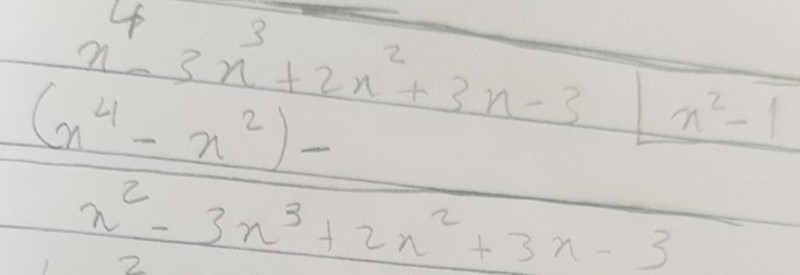 x⁴ - 3x³ + 2x² + 3x - 3 | x² - 1
(x⁴ - x²) -
x² - 3x³ + 2x² + 3x - 3
2